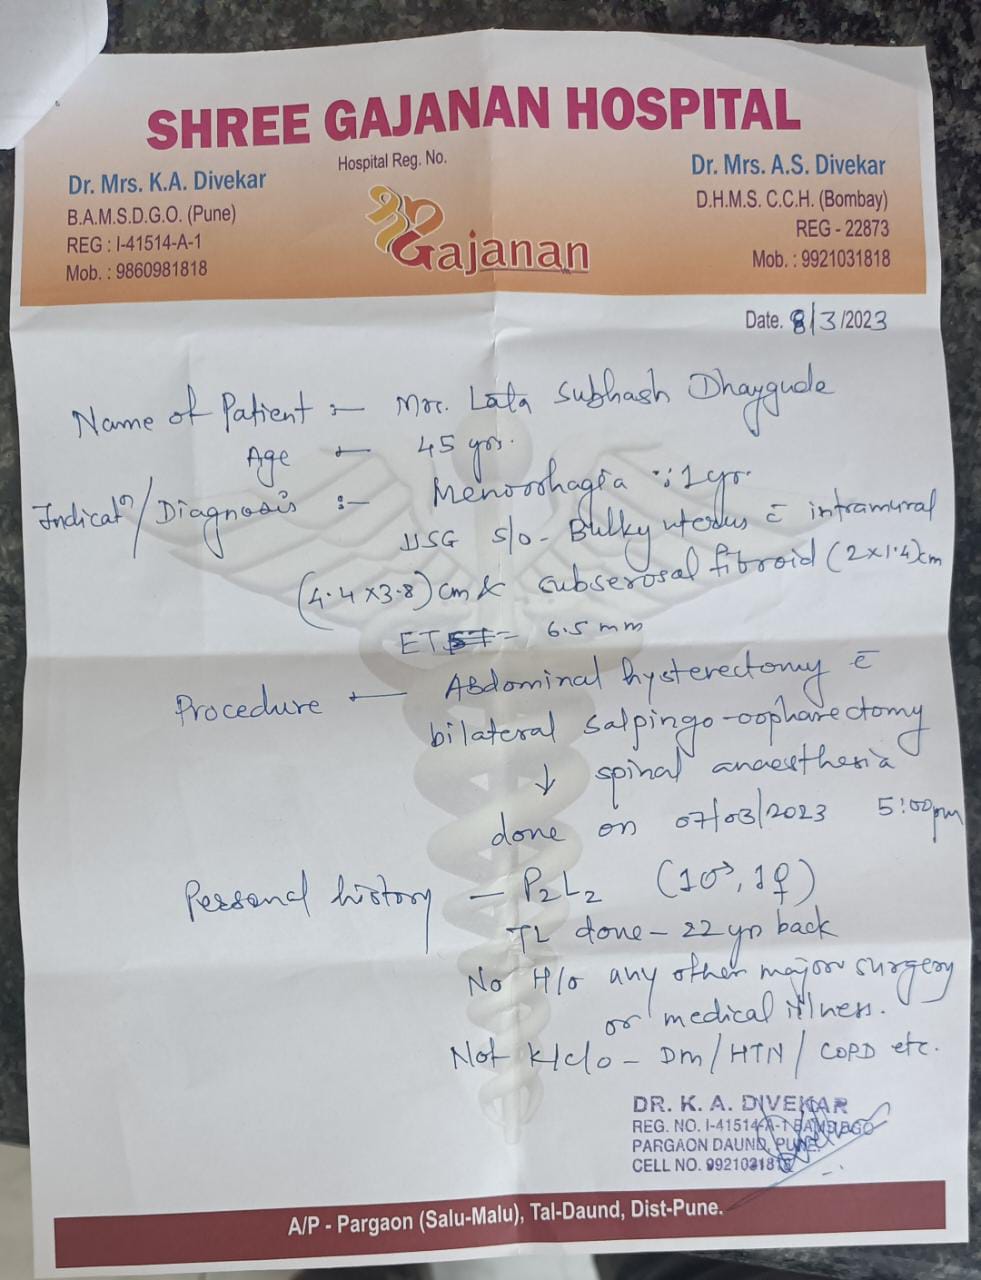 SHREE GAJANAN HOSPITAL
Hospital Reg. No.
Dr. Mrs. K.A. Divekar
B.A.M.S.D.G.O. (Pune)
REG : I-41514-A-1
Mob. : 9860981818
Gajanan
Dr. Mrs. A.S. Divekar
D.H.M.S. C.C.H. (Bombay)
REG - 22873
Mob. : 9921031818
Date. 8/3/2023
Name of Patient :- Mrs. Lata Subhash Dhaygude
Age - 45 yrs.
Indicatn/Diagnosis :- Menorrhagia ∵ 1 yr.
USG s/o - Bulky uterus c̄ intramural
(4.4 x 3.8) cm & subserosal fibroid (2 x 1.4) cm
ET = 6.5 mm
Procedure - Abdominal hysterectomy c̄
bilateral salpingo-oopharectomy
↓ spinal anaesthesia
done on 07/03/2023 5:00pm
Personal history - P2L2 (1♂, 1♀)
TL done - 22 yrs back
No H/o any other major surgery
or medical illness.
Not k/c/o - DM/HTN/COPD etc.
DR. K. A. DIVEKAR
REG. NO. I-41514-A-1 BAMS, DGO
PARGAON DAUND, PUNE.
CELL NO. 9921031818
A/P - Pargaon (Salu-Malu), Tal-Daund, Dist-Pune.